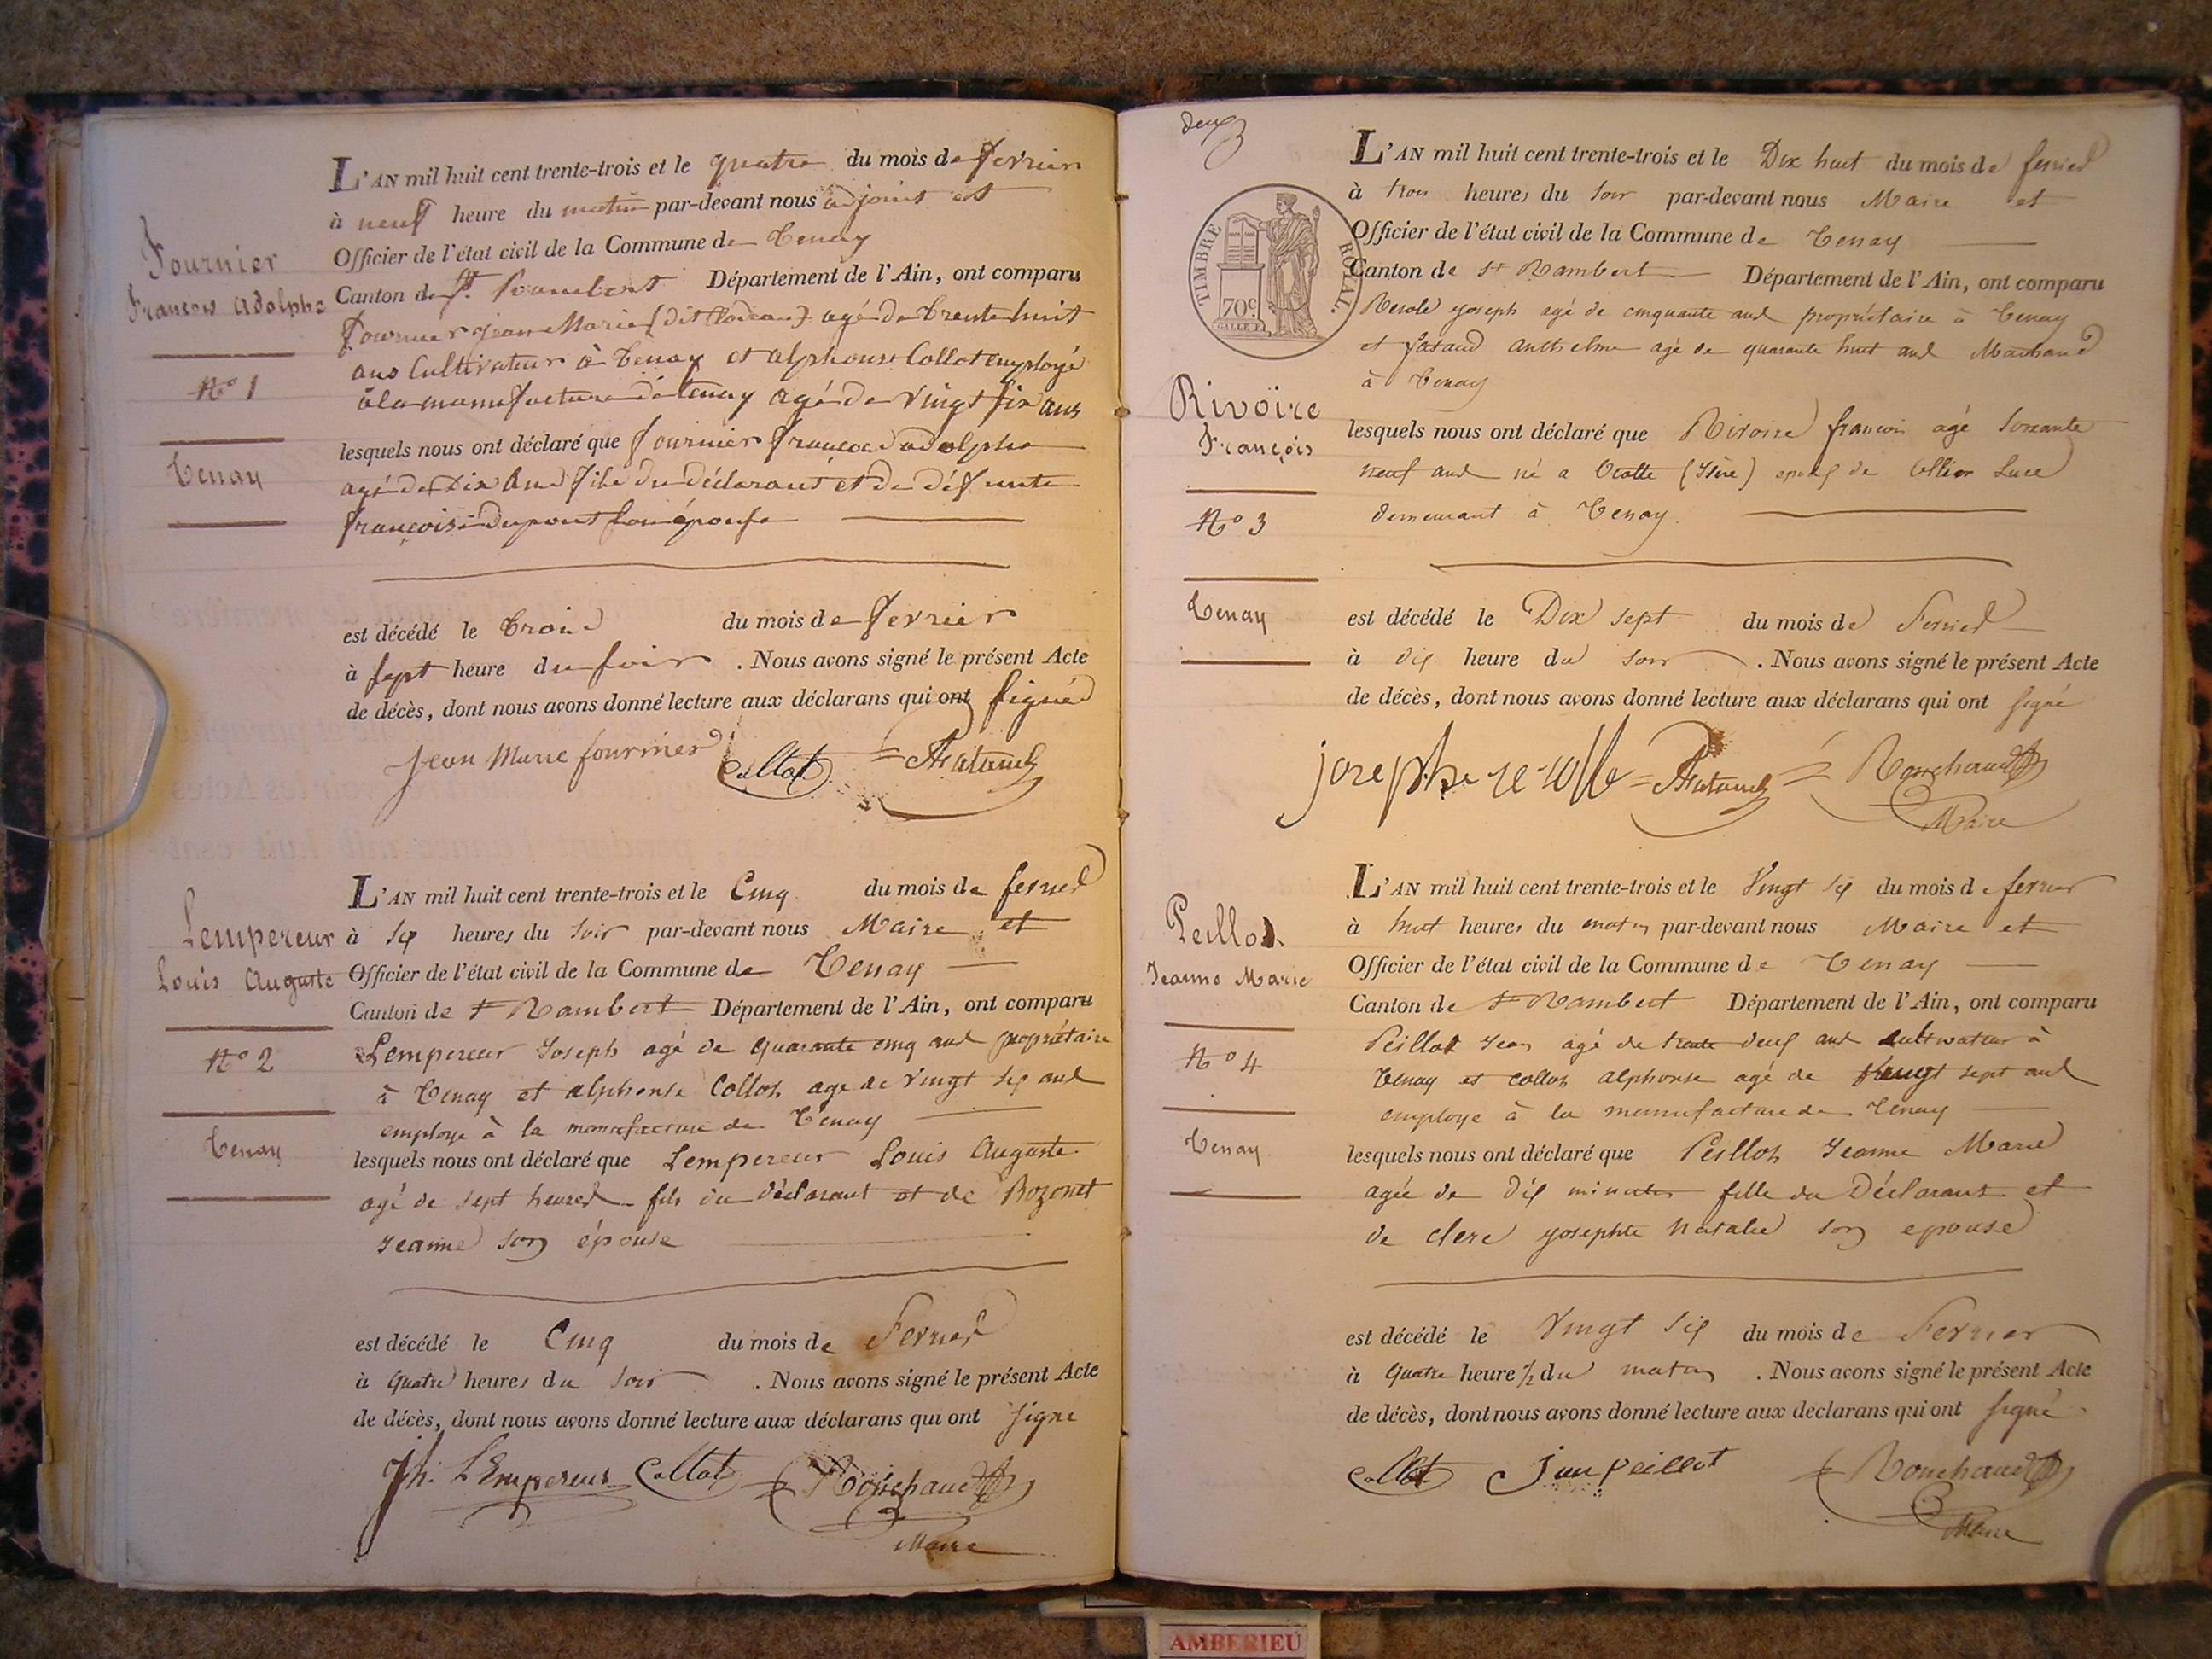 Fournier
François Adolphe
N° 1
Tenay
L'AN mil huit cent trente-trois et le quatre du mois de fevrier
à neuf heure du matin par-devant nous adjoint et
Officier de l'état civil de la Commune de Tenay
Canton de St. Rambert Département de l'Ain, ont comparu
fournier jean Marie (dit agé de trente huit
ans Cultivateur à Tenay et alphonse Collot employé
à la manufacture de tenay agé de vingt six ans
lesquels nous ont déclaré que fournier françois adolphe
agé de Dix ans fils du déclarant et de défunte
françoise dupont son épouse
est décédé le trois du mois de fevrier
à sept heure du soir . Nous avons signé le présent Acte
de décès, dont nous avons donné lecture aux déclarans qui ont signé
Jean Marie fournier Collot
Lempereur
Louis Auguste
N° 2
Tenay
L'AN mil huit cent trente-trois et le Cinq du mois de fevrier
à six heures du soir par-devant nous Maire et
Officier de l'état civil de la Commune de Tenay
Canton de St Rambert Département de l'Ain, ont comparu
Lempereur Joseph agé de quarante cinq ans propriétaire
à Tenay et alphonse Collot age de vingt six ans
employe à la manufacture de Tenay
lesquels nous ont déclaré que Lempereur Louis Auguste
agé de sept heures fils du déclarant et de Bozonet
Jeanne son épouse
est décédé le Cinq du mois de Fevrier
à quatre heures du soir . Nous avons signé le présent Acte
de décès, dont nous avons donné lecture aux déclarans qui ont signe
Jh. LEmpereur Collot Rouchaud
Maire
deux
TIMBRE ROYAL.
70c
Rivoire
François
N° 3
Tenay
L'AN mil huit cent trente-trois et le Dix huit du mois de fevrier
à trois heures du soir par-devant nous Maire et
Officier de l'état civil de la Commune de Tenay
Canton de St Rambert Département de l'Ain, ont comparu
joseph agé de cinquante ans propriétaire à Tenay
et anthelme agé de quarante huit ans Marchand
à Tenay
lesquels nous ont déclaré que Rivoire françois agé soixante
neuf ans né a (Isère) epoux de Luce
demeurant à Tenay
est décédé le Dix sept du mois de Fevrier
à dix heure du soir . Nous avons signé le présent Acte
de décès, dont nous avons donné lecture aux déclarans qui ont signé
josephe Rouchaud
Maire
Peillot
Jeanne Marie
N° 4
Tenay
L'AN mil huit cent trente-trois et le Vingt six du mois de fevrier
à huit heures du matin par-devant nous Maire et
Officier de l'état civil de la Commune de Tenay
Canton de St Rambert Département de l'Ain, ont comparu
Peillot Jean agé de trente deux ans cultivateur à
Tenay et collot alphonse agé de vingt sept ans
employe à la manufacture de Tenay
lesquels nous ont déclaré que Peillot Jeanne Marie
agée de dix minutes fille du Déclarant et
de clerc josephte natalie son epouse
est décédé le Vingt six du mois de Fevrier
à quatre heure ½ du matin . Nous avons signé le présent Acte
de décès, dont nous avons donné lecture aux declarans qui ont signé
Collot Jean peillot Rouchaud
Maire
AMBERIEU